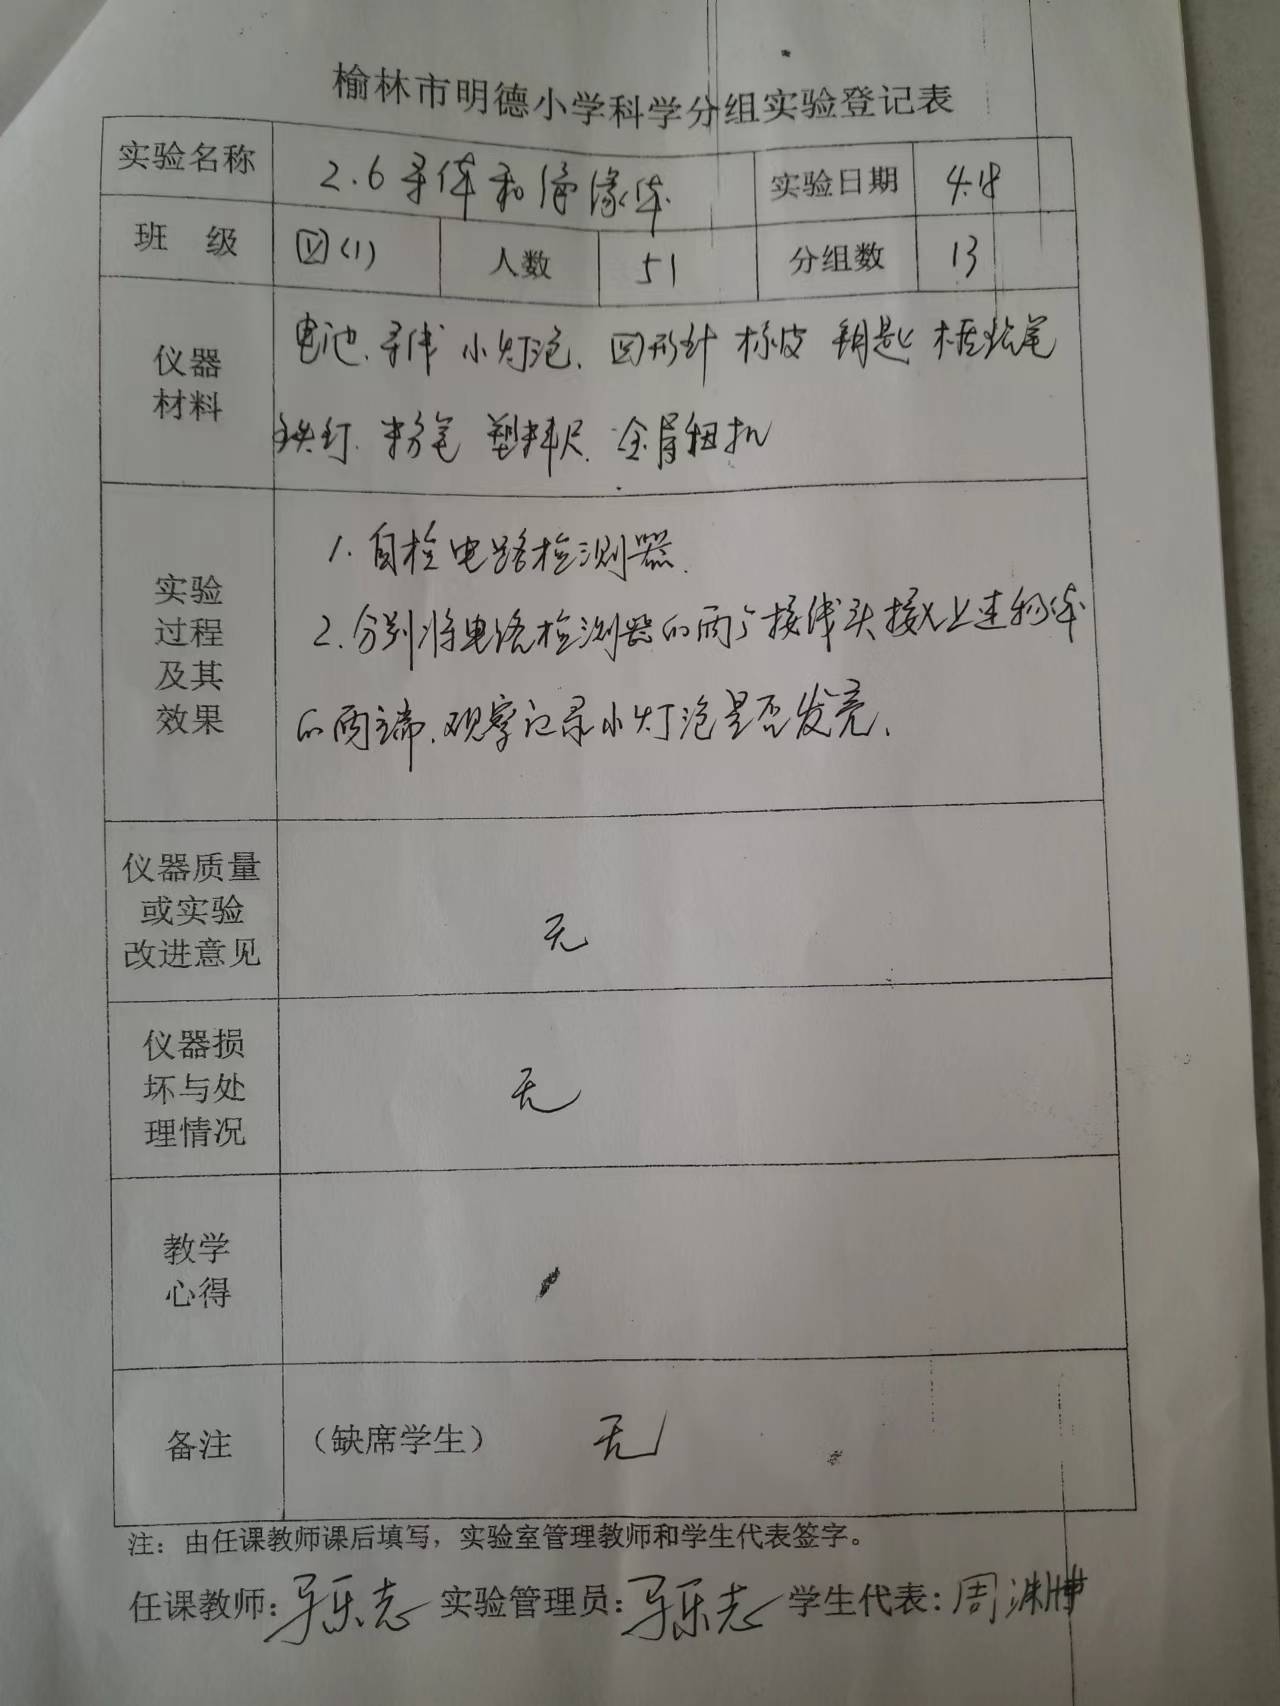 榆林市明德小学科学分组实验登记表
实验名称 2.6 导体和绝缘体 实验日期 4.18
班 级 四(1) 人数 51 分组数 13
仪器
材料
电池、导线 小灯泡、回形针 橡皮 钥匙
铁钉、粉笔 塑料尺、金属纽扣
实验
过程
及其
效果
1. 自检电路检测器.
2. 分别将电路检测器的两个接线头接入上述物体
的两端,观察记录小灯泡是否发亮.
仪器质量
或实验
改进意见
无
仪器损
坏与处
理情况
无
教学
心得
备注 (缺席学生) 无
注:由任课教师课后填写,实验室管理教师和学生代表签字。
任课教师: 实验管理员: 学生代表:周